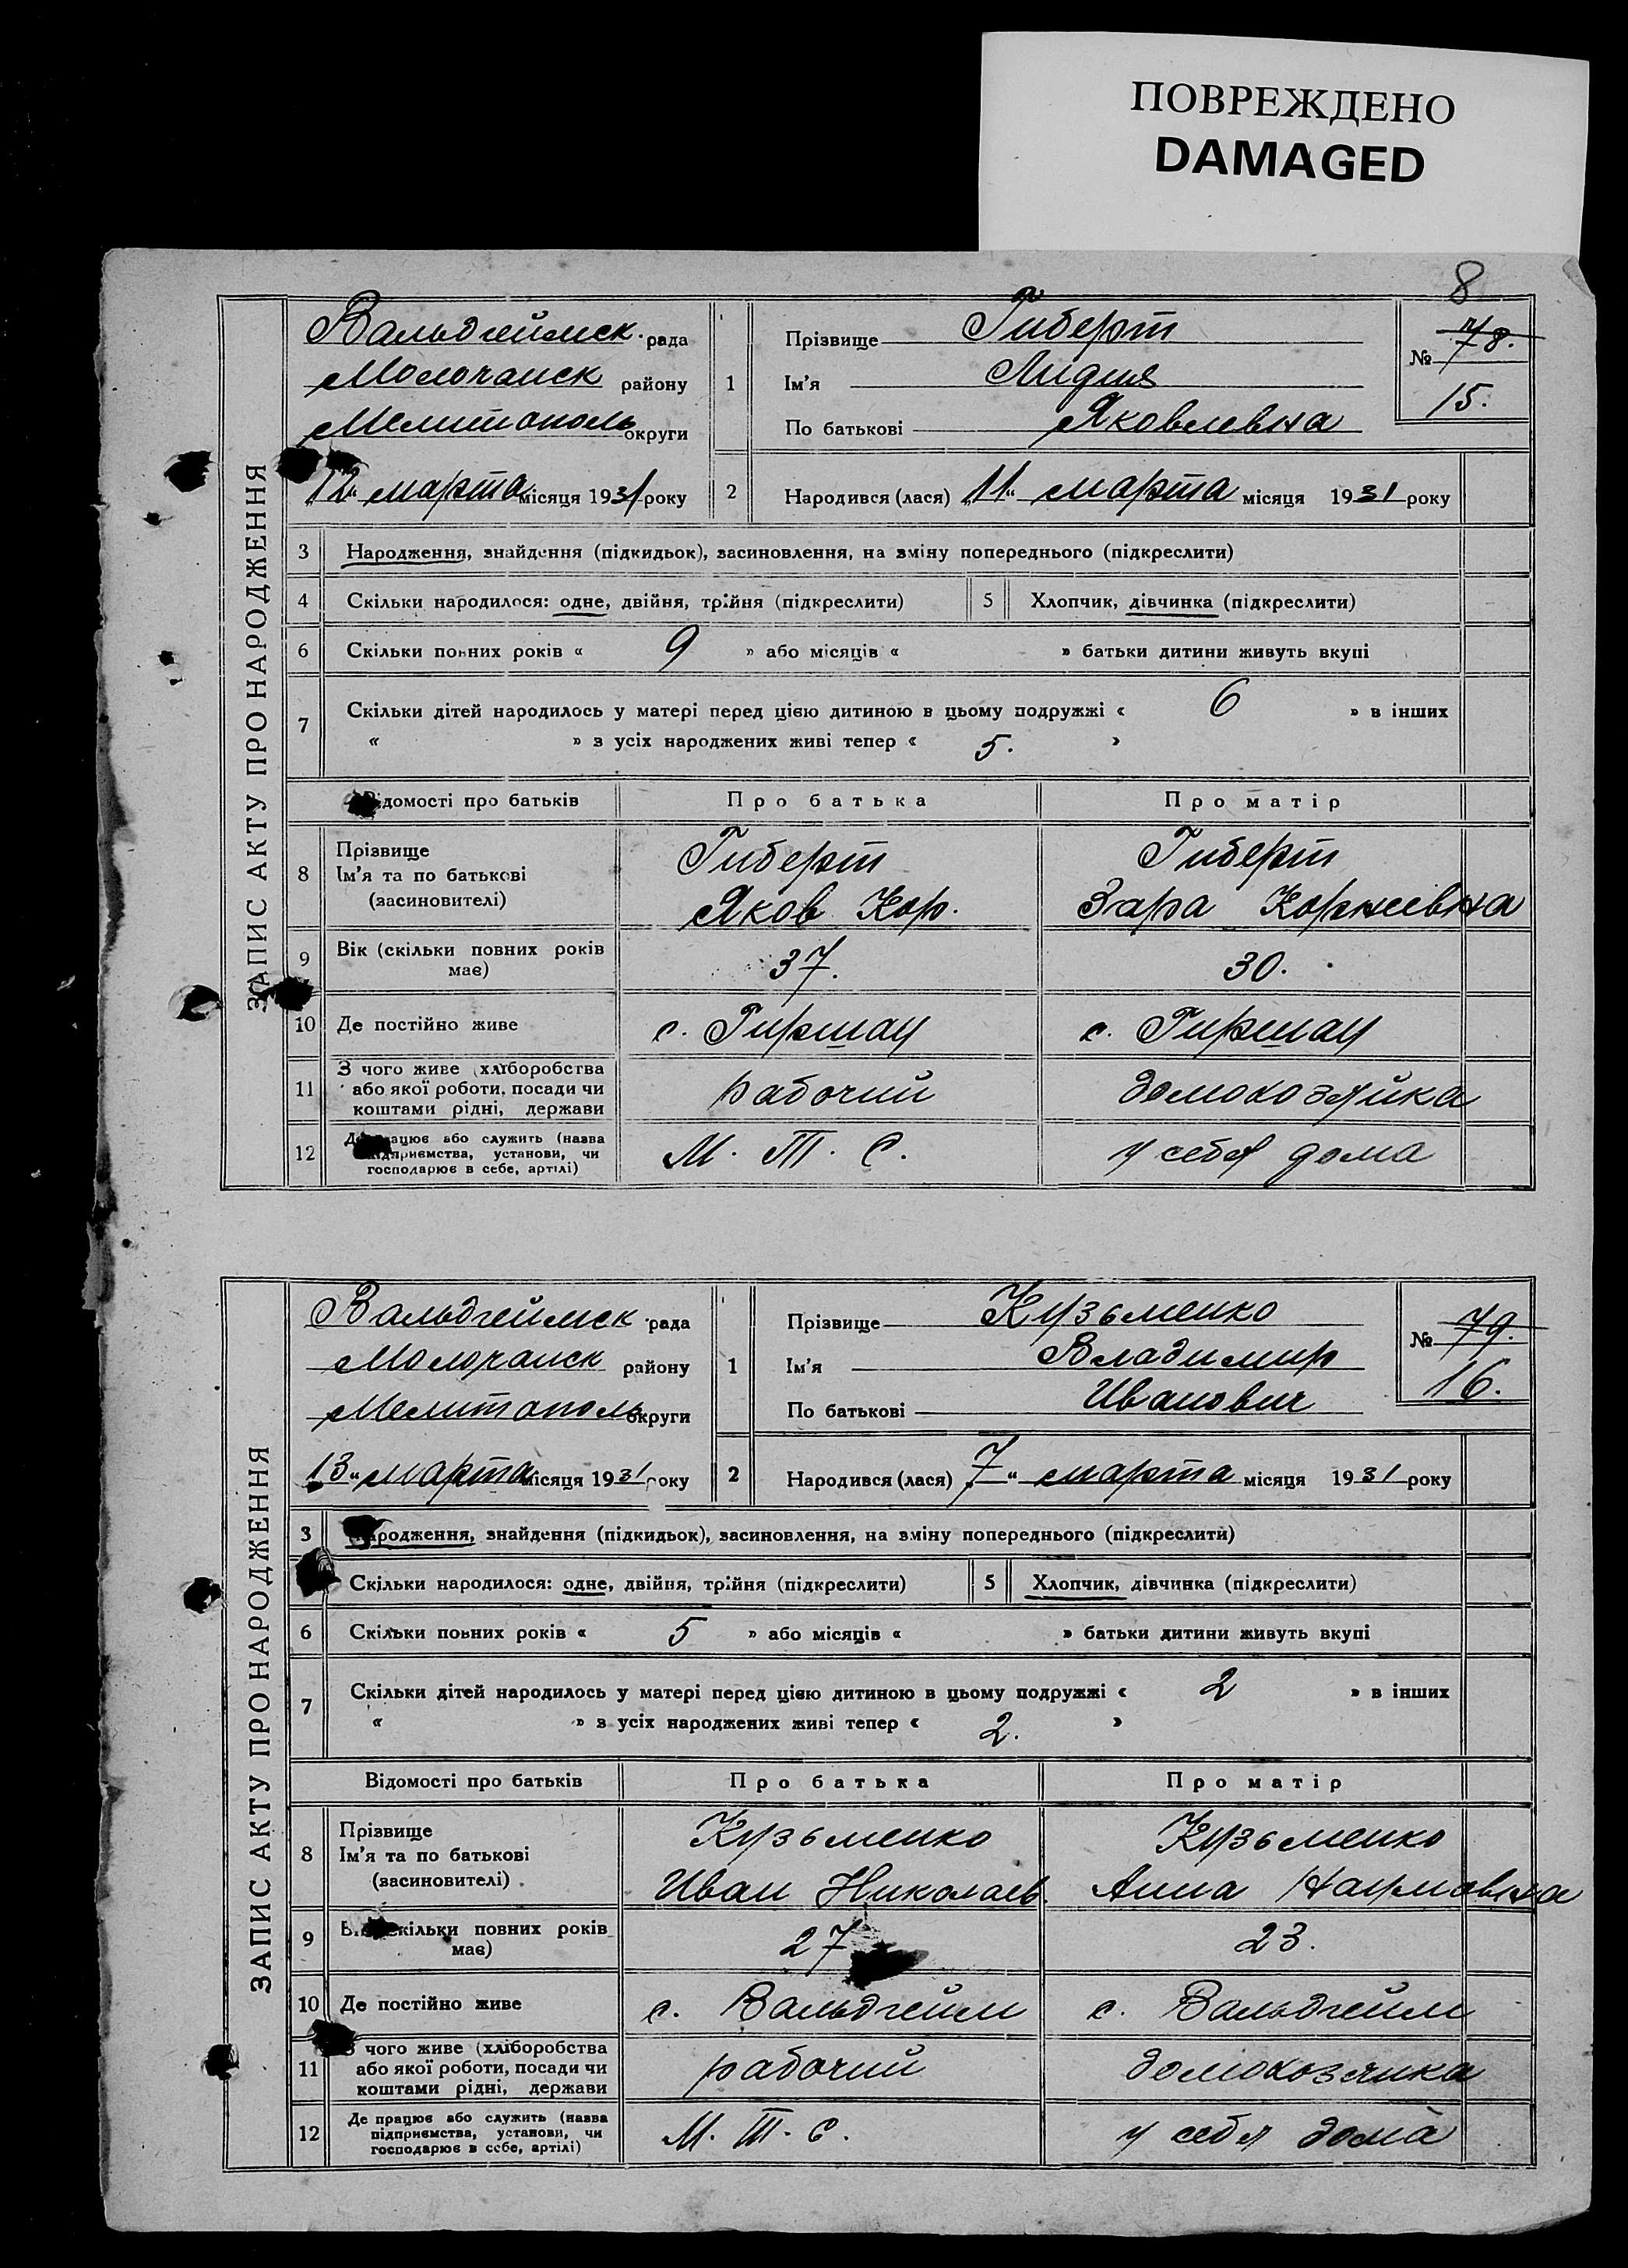 ПОВРЕЖДЕНО
DAMAGED
8
ЗАПИС АКТУ ПРО НАРОДЖЕННЯ
Вальдгеймск. рада
Молочанск району
Мелитополь округи
„12“ марта місяця 1931 року
1
Прізвище Гиберт
Ім'я Лидия
По батькові Яковлевна
№ 78.
15.
2 Народився (лася) „11“ марта місяця 1931 року
3 Народження, знайдення (підкидьок), засиновлення, на зміну попереднього (підкреслити)
4 Скільки народилося: одне, двійня, трійня (підкреслити) 5 Хлопчик, дівчинка (підкреслити)
6 Скільки повних років « 9 » або місяців « » батьки дитини живуть вкупі
7 Скільки дітей народилось у матері перед цією дитиною в цьому подружжі « 6 » в інших
« » з усіх народжених живі тепер « 5. »
Відомості про батьків Про батька Про матір
8 Прізвище Гиберт Гиберт
Ім'я та по батькові
(засиновителі) Яков Кор. Зара Корнеевна
9 Вік (скільки повних років має) 37. 30.
10 Де постійно живе с. Гиршау с. Гиршау
11 З чого живе (хліборобства
або якої роботи, посади чи рабочий домохозяйка
коштами рідні, держави
12 Де працює або служить (назва
підприємства, установи, чи М. Т. С. у себя дома
господарює в себе, артілі)
ЗАПИС АКТУ ПРО НАРОДЖЕННЯ
Вальдгеймск. рада
Молочанск району
Мелитополь округи
„13“ марта місяця 1931 року
1
Прізвище Кузьменко
Ім'я Владимир
По батькові Иванович
№ 79.
16.
2 Народився (лася) „7“ марта місяця 1931 року
3 Народження, знайдення (підкидьок), засиновлення, на зміну попереднього (підкреслити)
Скільки народилося: одне, двійня, трійня (підкреслити) 5 Хлопчик, дівчинка (підкреслити)
6 Скільки повних років « 5 » або місяців « » батьки дитини живуть вкупі
7 Скільки дітей народилось у матері перед цією дитиною в цьому подружжі « 2 » в інших
« » з усіх народжених живі тепер « 2. »
Відомості про батьків Про батька Про матір
8 Прізвище Кузьменко Кузьменко
Ім'я та по батькові
(засиновителі) Иван Николаев. Анна Наумовна
9 Вік (скільки повних років має) 27 23.
10 Де постійно живе с. Вальдгейм с. Вальдгейм
11 З чого живе (хліборобства
або якої роботи, посади чи рабочий домохозяика
коштами рідні, держави
12 Де працює або служить (назва
підприємства, установи, чи М. Т. С. у себя дома
господарює в себе, артілі)